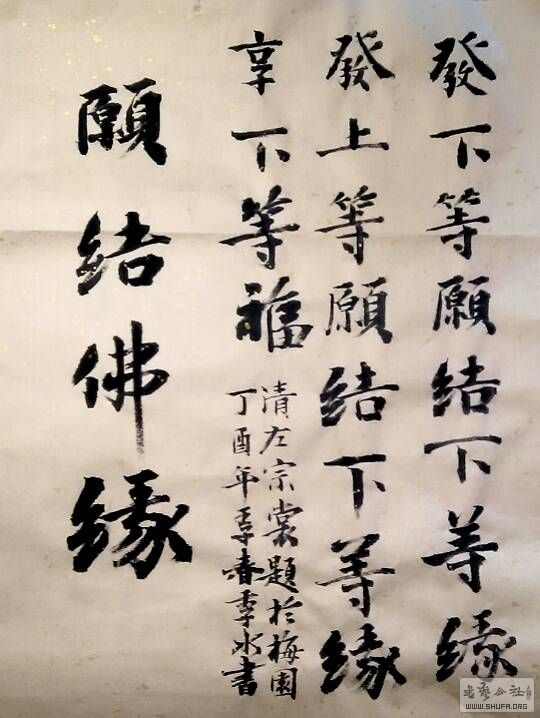 發下等願結下等緣
發上等願結下等緣
享下等福
清左宗棠題於梅園
丁酉年季春季水書
願結佛緣
書藝公社
WWW.SHUFA.ORG